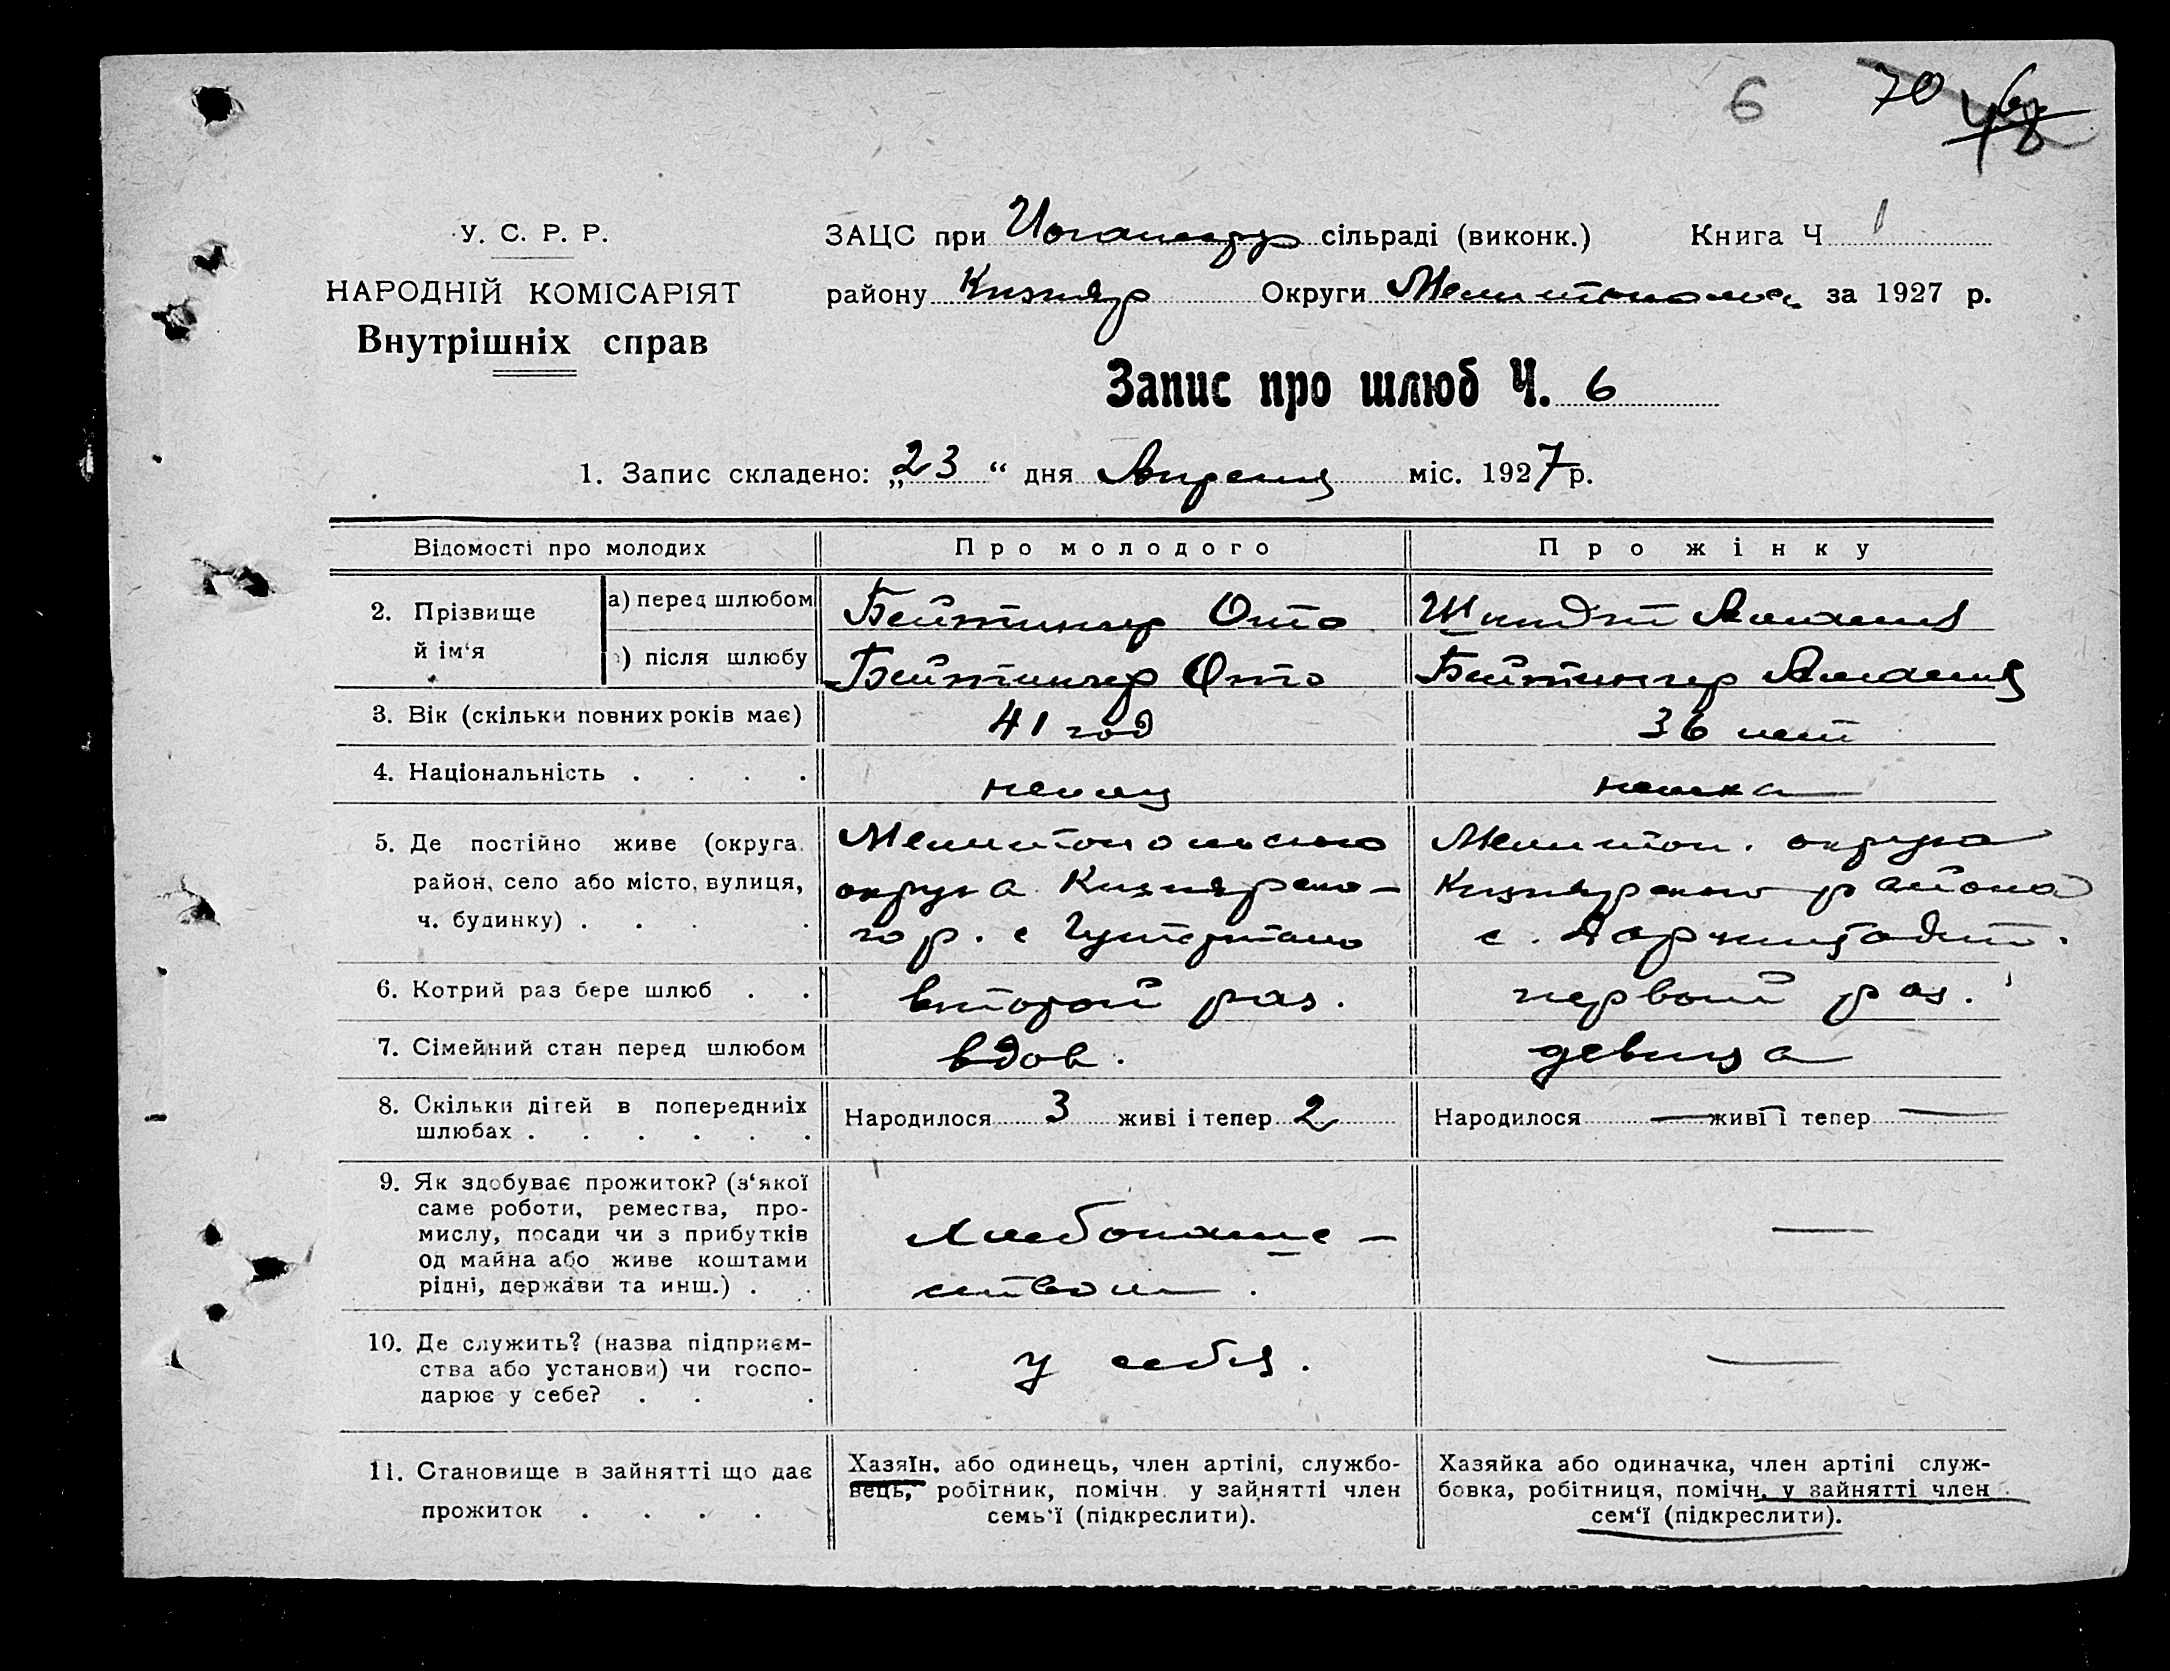 6 70
У. С. Р. Р. ЗАЦС при сільраді (виконк.) Книга Ч 1
НАРОДНІЙ КОМІСАРІЯТ району Кизияр Округи за 1927 р.
Внутрішніх справ
Запис про шлюб Ч. 6
1. Запис складено: „23“ дня Апреля міс. 1927 р.
Відомості про молодих Про молодого Про жінку
2. Прізвище й ім‘я а) перед шлюбом Бейтингер Отто Шмидт Амалия
) після шлюбу Бейтингер Отто Бейтингер Амалия
3. Вік (скільки повних років має) 41 год 36 лет
4. Національність . . . . немец немка
5. Де постійно живе (округа, Мелитопольского Мелитоп. округа
район, село або місто, вулиця, округа Кизиярско- Кизиярского района
ч. будинку) . . . . го р. с с.
6. Котрий раз бере шлюб . . второй раз. первый раз.
7. Сімейний стан перед шлюбом вдов. девица
8. Скільки дітей в попередниіх Народилося 3 живі і тепер 2 Народилося — живі і тепер —
шлюбах . . . . . .
9. Як здобуває прожиток? (з‘якої
саме роботи,ремества, про-
мислу, посади чи з прибутків хлебопаше- —
од майна або живе коштами
рідні, держави та инш.) . . ством.
10. Де служить? (назва підприєм-
ства або установи) чи госпо- у себя. —
дарює у себе? . . .
11. Становище в зайнятті що дає Хазяїн, або одинець, член артілі, службо- Хазяйка або одиначка, член артілі служ-
вець, робітник, помічн. у зайнятті член бовка, робітниця, помічн. у зайнятті член
прожиток . . . . семь‘ї (підкреслити). сем‘ї (підкреслити).